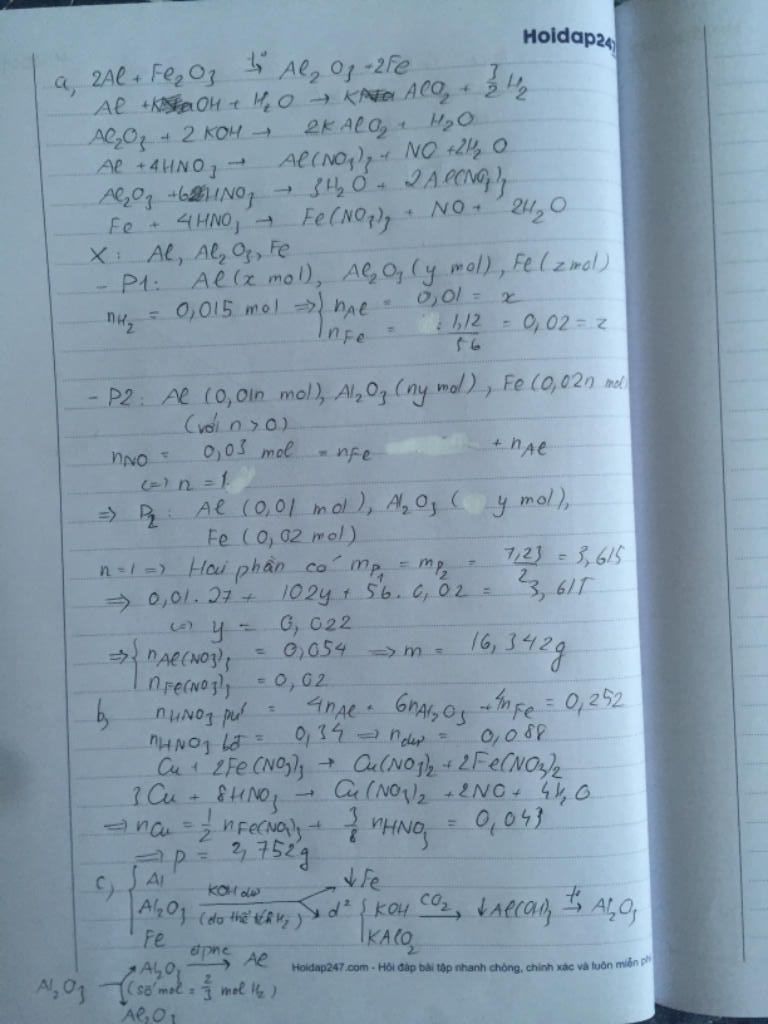 Hoidap247
a, 2Al + Fe₂O₃ t°→ Al₂O₃ + 2Fe
Al + KOH + H₂O → KAlO₂ + 3/2 H₂
Al₂O₃ + 2KOH → 2KAlO₂ + H₂O
Al + 4HNO₃ → Al(NO₃)₃ + NO + 2H₂O
Al₂O₃ + 6HNO₃ → 3H₂O + 2Al(NO₃)₃
Fe + 4HNO₃ → Fe(NO₃)₃ + NO + 2H₂O
X: Al, Al₂O₃, Fe
- P1: Al (x mol), Al₂O₃ (y mol), Fe (z mol)
nH₂ = 0,015 mol ⇒ { nAl = 0,01 = x
nFe = 1,12/56 = 0,02 = z
- P2: Al (0,01n mol), Al₂O₃ (ny mol), Fe (0,02n mol)
(với n > 0)
nNO = 0,03 mol = nFe + nAl
(=) n = 1
⇒ P₂: Al (0,01 mol), Al₂O₃ (y mol),
Fe (0,02 mol)
n = 1 => Hai phần có mP₁ = mP₂ = 7,23/2 = 3,615
⇒ 0,01.27 + 102y + 56.0,02 = 3,615
(=) y = 0,022
⇒ { nAl(NO₃)₃ = 0,054 ⇒ m = 16,342g
nFe(NO₃)₃ = 0,02
b, nHNO₃ pứ = 4nAl + 6nAl₂O₃ + 4nFe = 0,252
nHNO₃ bđ = 0,34 ⇒ n dư = 0,088
Cu + 2Fe(NO₃)₃ → Cu(NO₃)₂ + 2Fe(NO₃)₂
3Cu + 8HNO₃ → Cu(NO₃)₂ + 2NO + 4H₂O
⇒ nCu = 1/2 nFe(NO₃)₃ + 3/8 nHNO₃ = 0,043
⇒ p = 2,752g
c) { Al
Al₂O₃ KOH dư → ↓Fe
(đo thể tích H₂) d² { KOH CO₂→ ↓Al(OH)₃ t°→ Al₂O₃
Fe KAlO₂
Al₂O₃ đpnc→ Al
Al₂O₃ (số mol = 2/3 mol H₂)
Al₂O₃
Hoidap247.com - Hỏi đáp bài tập nhanh chóng, chính xác và luôn miễn ph